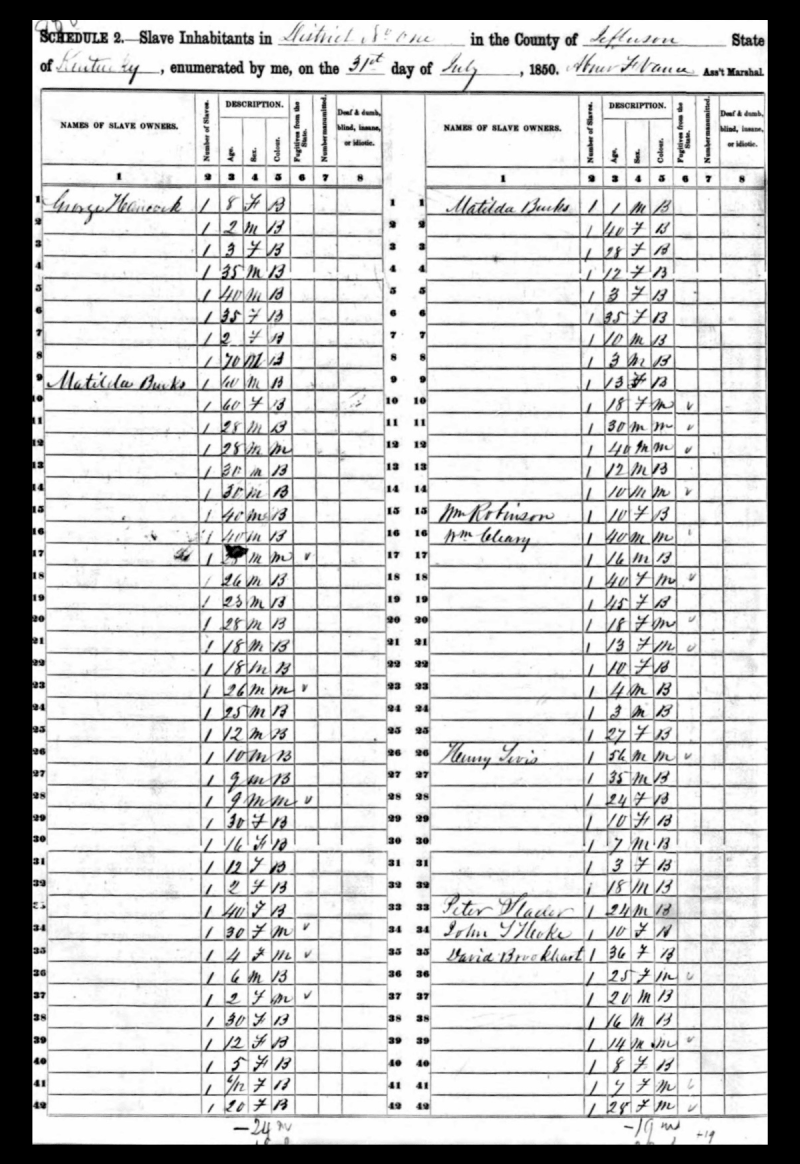 SCHEDULE 2.—Slave Inhabitants in District No One in the County of Jefferson State
of Kentucky, enumerated by me, on the 31st day of July, 1850. Abner F Vance Ass't Marshal.
NAMES OF SLAVE OWNERS. Number of Slaves. DESCRIPTION. Age. Sex. Colour. Fugitives from the State. Number manumitted. Deaf & dumb, blind, insane, or idiotic. NAMES OF SLAVE OWNERS. Number of Slaves. DESCRIPTION. Age. Sex. Colour. Fugitives from the State. Number manumitted. Deaf & dumb, blind, insane, or idiotic.
1 2 3 4 5 6 7 8 1 2 3 4 5 6 7 8
1 George Hancock 1 8 F B 1 1 Matilda Burks 1 1 M B
2 1 2 M B 2 2 1 40 F B
3 1 3 F B 3 3 1 28 F B
4 1 35 M B 4 4 1 12 F B
5 1 40 M B 5 5 1 3 F B
6 1 35 F B 6 6 1 35 F B
7 1 2 F B 7 7 1 10 M B
8 1 70 M B 8 8 1 3 M B
9 Matilda Burks 1 60 M B 9 9 1 13 F B
10 1 60 F B 10 10 1 18 F M v
11 1 28 M B 11 11 1 30 M M v
12 1 28 M M 12 12 1 40 M M v
13 1 30 M B 13 13 1 12 M B
14 1 30 M B 14 14 1 10 M M v
15 1 40 M B 15 15 Wm Robinson 1 10 F B
16 1 40 M B 16 16 Wm Cleary 1 40 M M
17 1 M M v 17 17 1 16 M B
18 1 26 M B 18 18 1 40 F M v
19 1 23 M B 19 19 1 45 F B
20 1 28 M B 20 20 1 18 F M v
21 1 18 M B 21 21 1 13 F M v
22 1 18 M B 22 22 1 10 F B
23 1 26 M M v 23 23 1 4 M B
24 1 25 M B 24 24 1 3 M B
25 1 12 M B 25 25 1 27 F B
26 1 10 M B 26 26 Henry 1 56 M M v
27 1 9 M B 27 27 1 35 M B
28 1 9 M M v 28 28 1 24 F B
29 1 30 F B 29 29 1 10 F B
30 1 16 F B 30 30 1 7 M B
31 1 12 F B 31 31 1 3 F B
32 1 2 F B 32 32 1 18 M B
1 40 F B 33 33 Peter 1 24 M B
34 1 30 F M v 34 34 John 1 10 F B
35 1 4 F M v 35 35 David Brookhart 1 36 F B
36 1 6 M B 36 36 1 25 F M v
37 1 2 F M v 37 37 1 20 M B
38 1 30 F B 38 38 1 16 M B
39 1 12 F B 39 39 1 14 M M v
40 1 5 F B 40 40 1 8 F B
41 1 6/12 F B 41 41 1 7 F M v
42 1 20 F B 42 42 1 28 F M v
-24 m -19 m +19